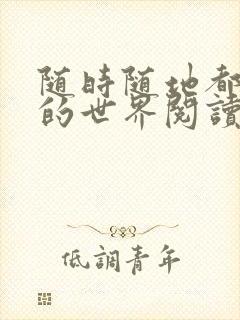 随時随地都
的世界閱讀
低調青年